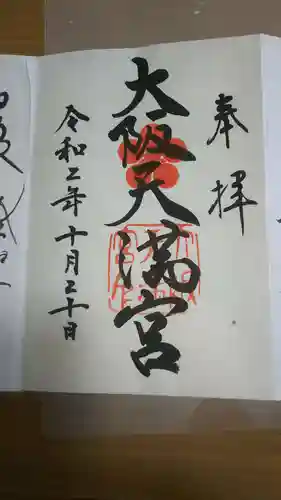 奉拝
大阪天満宮
令和二年十月三十日